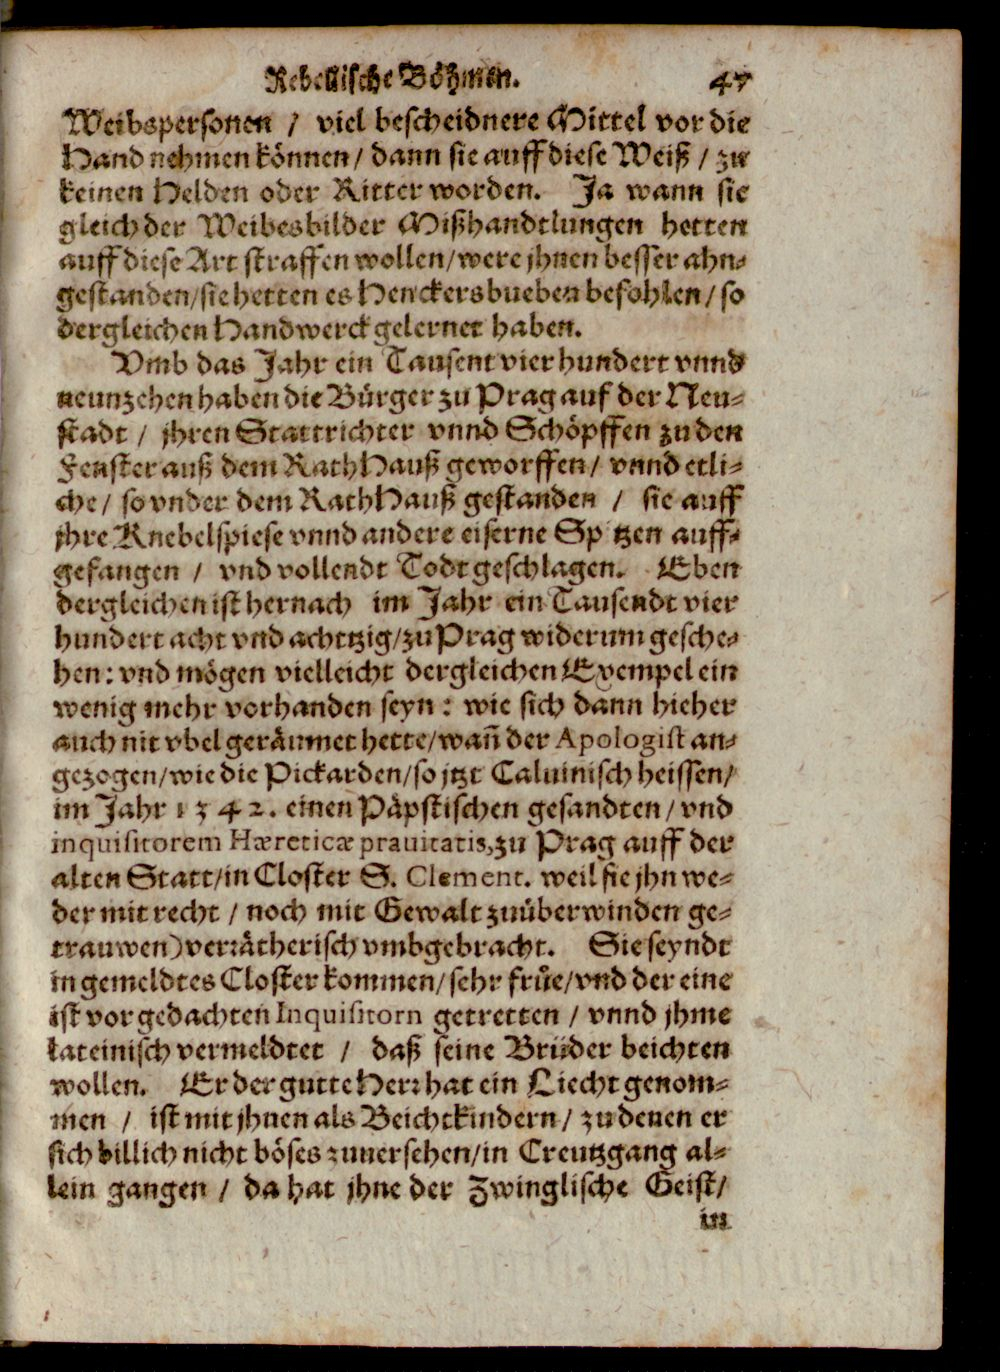 Rebellische Böhmen. 47
Weibspersonen / viel bescheidnere Mittel vor die
Hand nehmen können / dann sie auff diese Weiß / zu
keinen Helden oder Ritter worden. Ja wann sie
gleich der Weibesbilder Mißhandtlungen hetten
auff diese Art straffen wollen / were jhnen besser ahn⸗
gestanden / sie hetten es Henckersbueben befohlen / so
dergleichen Handwerck gelernet haben.
Vmb das Jahr ein Tausent vier hundert vnnd
neunzehen haben die Bürger zu Prag auf der Neu⸗
stadt / jhren Stattrichter vnnd Schöpffen zu den
Fenster auß dem RathHauß geworffen / vnnd etli⸗
che / so vnder dem RathHauß gestanden / sie auff
jhre Knebelspiese vnnd andere eiserne Sp tzen auff⸗
gefangen / vnd vollendt Todt geschlagen. Eben
dergleichen ist hernach im Jahr ein Tausendt vier
hundert acht vnd achttzig / zu Prag widerum gesche⸗
hen : vnd mögen vielleicht dergleichen Exempel ein
wenig mehr vorhanden seyn : wie sich dann hieher
auch nit vbel geräumet hette / wañ der Apologist an⸗
gezogen / wie die Pickarden / so jtzt Caluinisch heissen /
im Jahr 1342. einen Päpstischen gesandten / vnd
inquisitorem Hæreticæ prauitatis, zu Prag auff der
alten Statt / in Closter S. Clement. weil sie jhn we⸗
der mit recht / noch mit Gewalt zuüberwinden ge⸗
trauwen) verrätherisch vmbgebracht. Sie seyndt
in gemeldtes Closter kommen / sehr früe / vnd der eine
ist vor gedachten Inquisitorn getretten / vnnd jhme
lateinisch vermeldtet / daß seine Brüder beichten
wollen. Er der gutte Herr hat ein Liecht genom⸗
men / ist mit jhnen als Beichtkindern / zu denen er
sich billich nicht böses zuuersehen / in Creutzgang al⸗
lein gangen / da hat jhne der Zwinglische Geist /
in